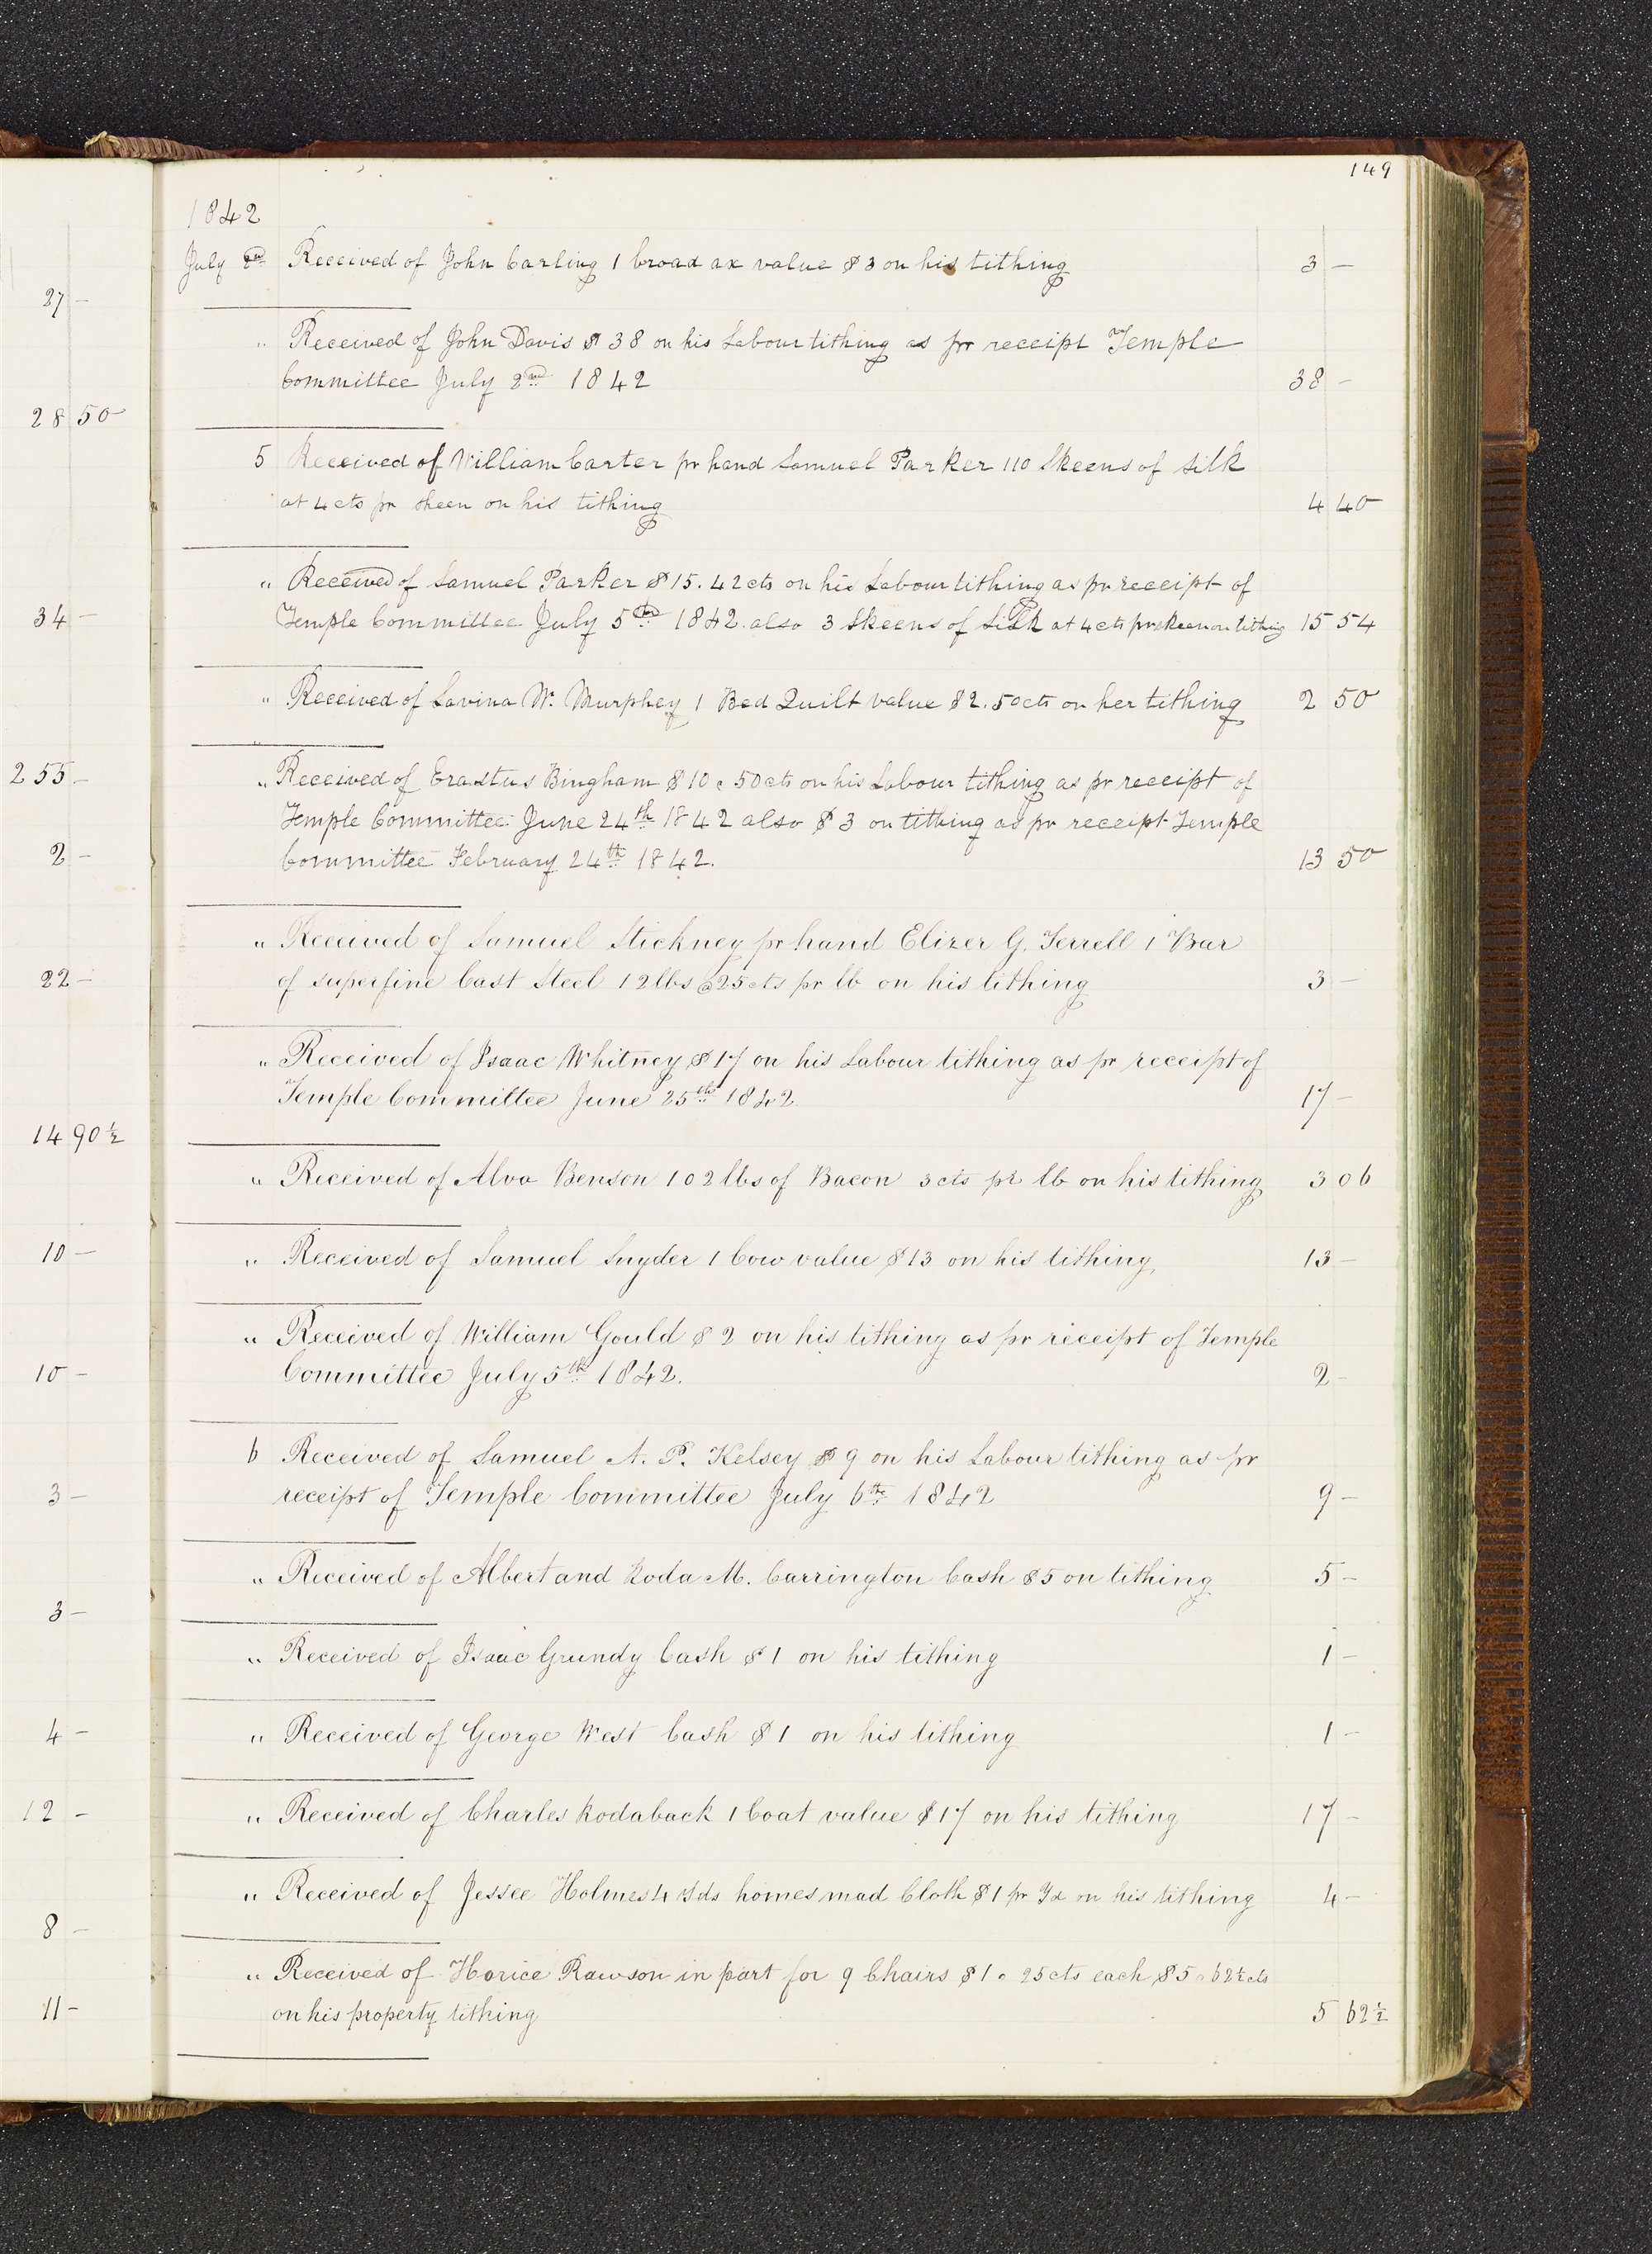 149
1842
July 2nd Received of John Carling 1 broad ax value $3 on his tithing 3 –
27 –
" Received of John Davis $ 38 on his Labour tithing as pr receipt Temple
Committee July 2nd 1842 38 –
28 50
5 Received of William Carter pr hand Samuel Parker 110 Skeens of silk
at 4 cts pr skeen on his tithing 4 40
" Received of Samuel Parker $15.42 cts on his Labour tithing as pr receipt of
34 –
Temple Committee July 5th 1842. also 3 Skeens of Silk at 4 cts pr skeen on tithing 15 54
" Received of Lovina W. Murphey 1 Bed Quilt value $2.50 cts on her tithing 2 50
255 –
" Received of Erastus Bingham $10.50 cts on his Labour tithing as pr receipt of
Temple Committee June 24th 1842 also $3 on tithing as pr receipt Temple
2 –
Committee February 24th 1842. 13 50
" Received of Samuel Stickney pr hand Elizer G. Terrell 1 Bar
22 –
of superfine Cast Steel 12 lbs @ 25 cts pr lb on his tithing 3 –
" Received of Isaac Whitney $17 on his Labour tithing as pr receipt of
Temple Committee June 25th 1842 17 –
14 90 ½
" Received of Alva Benson 102 lbs of Bacon 3 cts pr lb on his tithing 3 06
10 –
" Received of Samuel Snyder 1 Cow value $13 on his tithing 13 –
" Received of William Gould $2 on his tithing as pr receipt of Temple
10 –
Committee July 5th 1842. 2 –
6 Received of Samuel A. P. Kelsey $9 on his Labour tithing as pr
3 –
receipt of Temple Committee July 6th 1842 9 –
" Received of Albert and Roda M. Carrington Cash $5 on tithing 5 –
3 –
" Received of Isaac Grundy Cash $1 on his tithing 1 –
4 –
" Received of George West Cash $1 on his tithing 1 –
12 –
" Received of Charles Rodaback 1 Coat value $17 on his tithing 17 –
" Received of Jessee Holmes 4 Yds homes mad Cloth $1 pr Yd on his tithing 4 –
8 –
" Received of Horice Rawson in part for 9 Chairs $1.25 cts each $5.62½ cts
11 –
on his property tithing 5 62½